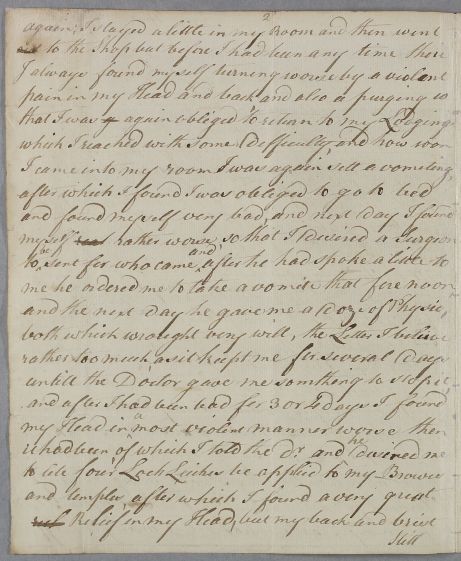 2
again, I stayed a little in my Room and then went
to the Shop but before I had been any time there
I always found myself turning worse by a violent
pain in my Head and back and also a purging so
that I was again obliged to return to my Lodgings
which I reached with some Difficulty and how soon
I came into my room I was again sett a vomiting
after which I found I was obliged to go to bed
and found myself very bad, and next day I found
myself rather worse, so that I desired a Surgeon
to be sent for who came and after he had spoke a little to
me he ordered me to take a vomite that fore noon
and the next day he gave me a Doze of Physic,
both which wrought very well, the Latter I believe
rather too much as it keept me for several Days
untill the Doctor gave me somthing to stop it
and after I had been bad for 3 or 4 days I found
my Head in a most violent manner worse then
it had been of which I told the Dr. and he desired me
to let four Loch Leiches be applied to my Browes
and temples after which I found a very great
Relief in my Head, but my back and briest
Still